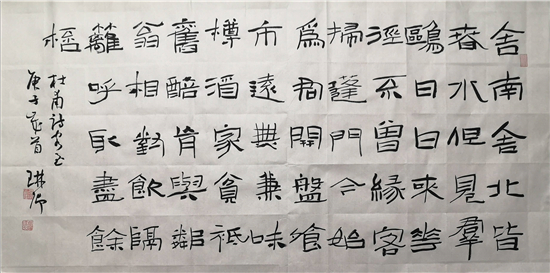 舍南舍北皆
春水但見羣
鷗日日來花
徑不曾緣客
掃蓬門今始
爲君開盤飧
市遠無兼味
樽酒家貧袛
舊醅肯與鄰
翁相對飲隔
籬呼取盡餘
桮
杜甫詩客至
庚子歲首